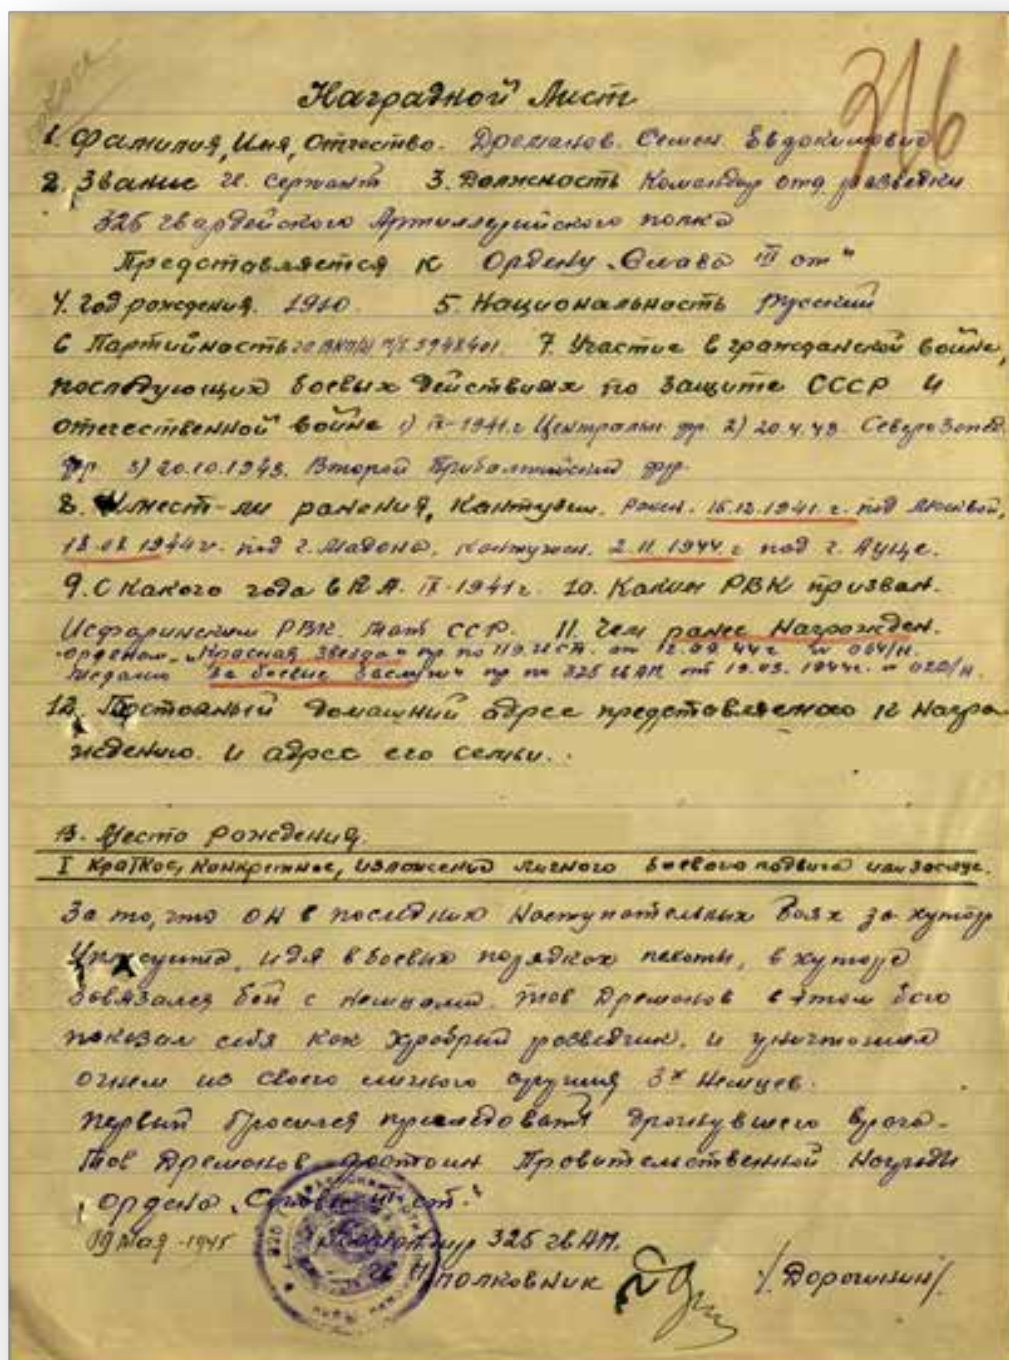 316
Наградной Лист
1. Фамилия, Имя, Отчество. Дреманов. Семен. Евдокимович
2. Звание гв. Сержант 3. Должность Командир отд. разведки
325 гвардейского Артиллерийского полка
Представляется к Ордену „Слава III ст“
4. Год рождения. 1910. 5. Национальность Русский
6 Партийность 7. Участие в гражданской войне,
последующих боевых действиях по защите СССР и
отечественной войне 1) IX-1941.г Централн фр. 2) 20.4.43. Северо Запад.
фр. 3) 20.10.1943. Второй Прибалтийский фр.
8. Имеет-ли ранения, Контузии. ранен. 15.12.1941. г. под Москвой,
18.08 1944 г. под г. Мадона, контужен. 2.11.1944. г под г. Ауце.
9. С какого года в К.А. IX-1941 г. 10. Каким РВК призван.
Исфаринским РВК. Тад ССР. 11. Чем ранее Награжден.
орденом „Красная Звезда“ пр по от 12.09.44 г № 064/н.
медалью "За боевые заслуги" пр по 325 гв АП от 19.03.1944г. № 020/н.
12. Постоянный домашний адрес представляемого к Награ
ждению. и адрес его семьи..
13. Место рождения.
I Краткое, Конкретное, изложение личного боевого подвига или заслуг.
За то, что он в последних наступательных боях за хутор
идя в боевых порядках пехоты, в хуторе
бой с немцами. тов Дреманов в этом бою
показал себя как храбрый разведчик. и уничтожил
огнем из своего личного оружия 3х Немцев.
первый бросился преследовать дрогнувшего врага.
Тов Дреманов достоин Правительственной Награды
ордена „Слава III ст.“
19 мая-1945 Командир 325 гв АП.
гв П/полковник /Дорогинин/.
325